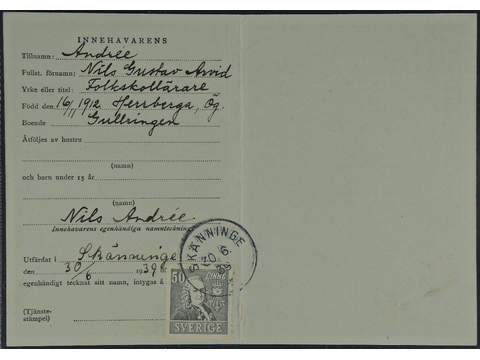 INNEHAVARENS
Tillnamn: Andrée
Fullst. förnamn: Nils Gustav Arvid
Yrke eller titel: Folkskollärare
Född den 16/11 1912 Herrberga, Ög.
Boende Gullringen
Åtföljes av hustru
(namn)
och barn under 15 år
(namn)
Nils Andrée
Innehavarens egenhändiga namnteckning
Utfärdat i Skänninge
den 30/6 1939
egenhändigt tecknat sitt namn, intygas å
(Tjänste-
stämpel)
SKÄNNINGE
30 6
50
SVERIGE